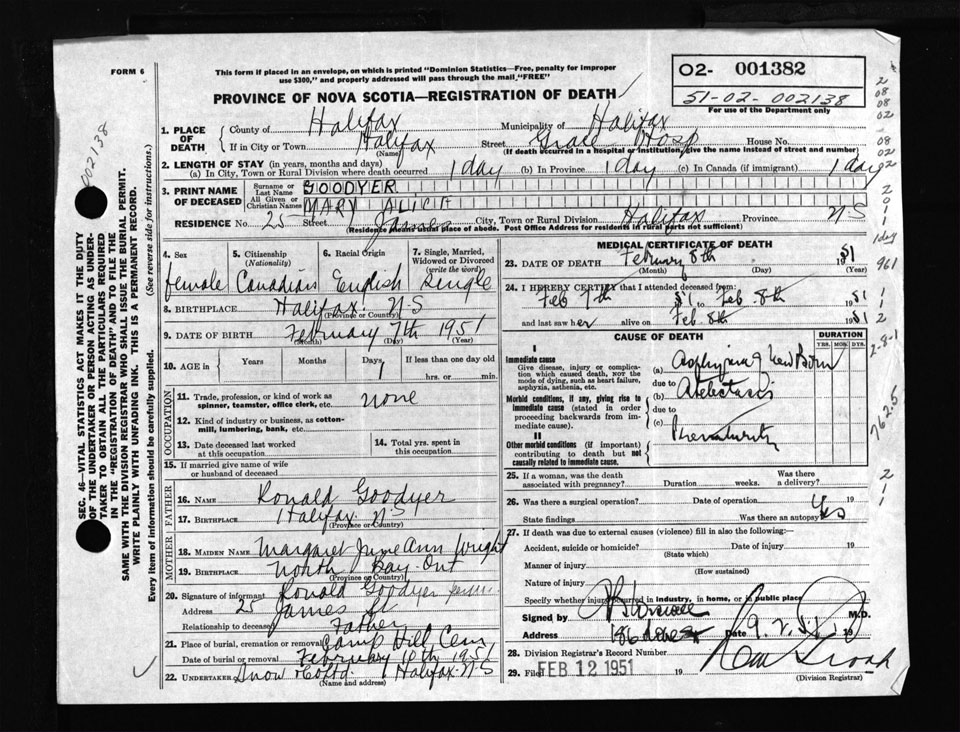 FORM 6
This form if placed in an envelope, on which is printed "Dominion Statistics—Free, penalty for improper
use $300," and properly addressed will pass through the mail, "FREE"
PROVINCE OF NOVA SCOTIA—REGISTRATION OF DEATH
02- 001382
51-02-002138
For use of the Department only
002138
1. PLACE OF DEATH
County of Halifax Municipality of Halifax
If in City or Town Halifax Street Grace Hosp House No.
(Name) (If death occurred in a hospital or institution, give the name instead of street and number)
2. LENGTH OF STAY (in years, months and days)
(a) In City, Town or Rural Division where death occurred 1 day (b) In Province 1 day (c) In Canada (if immigrant) 1 day
3. PRINT NAME OF DECEASED
Surname or Last Name GOODYER
All Given or Christian Names MARY ALICIA
RESIDENCE No. 25 Street James City, Town or Rural Division Halifax Province NS
(Residence means usual place of abode. Post Office Address for residents in rural parts not sufficient)
4. Sex female
5. Citizenship (Nationality) Canadian
6. Racial Origin English
7. Single, Married, Widowed or Divorced (write the word) Single
8. BIRTHPLACE Halifax NS
(Province or Country)
9. DATE OF BIRTH February 7th 1951
(Month) (Day) (Year)
10. AGE IN Years Months Days 1 If less than one day old
hrs. or min.
OCCUPATION
11. Trade, profession, or kind of work as spinner, teamster, office clerk, etc. none
12. Kind of industry or business, as cotton-mill, lumbering, bank, etc.
13. Date deceased last worked at this occupation
14. Total yrs. spent in this occupation
15. If married give name of wife or husband of deceased
FATHER
16. NAME Ronald Goodyer
17. BIRTHPLACE Halifax NS
(Province or Country)
MOTHER
18. MAIDEN NAME Margaret June Ann Wright
19. BIRTHPLACE North Bay Ont
(Province or Country)
20. Signature of informant Ronald Goodyer
Address 25 James St
Relationship to deceased Father
21. Place of burial, cremation or removal Camp Hill Cem
Date of burial or removal February 10th 1951
22. UNDERTAKER Snow & Co Ltd. Halifax NS
(Name and address)
MEDICAL CERTIFICATE OF DEATH
23. DATE OF DEATH February 8th 1951
(Month) (Day) (Year)
24. I HEREBY CERTIFY that I attended deceased from:
Feb 7th 51 to Feb 8th 1951
and last saw her alive on Feb 8th 1951
CAUSE OF DEATH
DURATION
YRS. MOS. DYS.
I
Immediate cause
Give disease, injury or complication which caused death, NOT the mode of dying, such as heart failure, asphyxia, asthenia, etc.
(a) Asphyxia of New Born
due to
Morbid conditions, if any, giving rise to immediate cause (stated in order proceeding backwards from immediate cause).
(b) Atelectasis
due to
(c)
II
Other morbid conditions (if important) contributing to death but not causally related to immediate cause.
Prematurity
25. If a woman, was the death associated with pregnancy? Duration weeks. Was there a delivery?
26. Was there a surgical operation? Date of operation 19
State findings Was there an autopsy Yes
27. If death was due to external causes (violence) fill in also the following:
Accident, suicide or homicide? Date of injury 19
(State which)
Manner of injury
(How sustained)
Nature of injury
Specify whether injury occurred in industry, in home, or in public place
Signed by M.D.
Address 186 Date 9. 2. 51 19
28. Division Registrar's Record Number
29. Filed FEB 12 1951 19
(Division Registrar)
SEC. 46—VITAL STATISTICS ACT MAKES IT THE DUTY
OF THE UNDERTAKER OR PERSON ACTING AS UNDER-
TAKER TO OBTAIN ALL THE PARTICULARS REQUIRED
IN THE "REGISTRATION OF DEATH" AND TO FILE THE
SAME WITH THE DIVISION REGISTRAR WHO SHALL ISSUE THE BURIAL PERMIT.
WRITE PLAINLY WITH UNFADING INK. THIS IS A PERMANENT RECORD.
Every item of information should be carefully supplied. (See reverse side for instructions.)
2
08
08
02
08
02
02
2
0
1
1
1 day
961
1
1
2
2-8-1
762.5
2
1
1